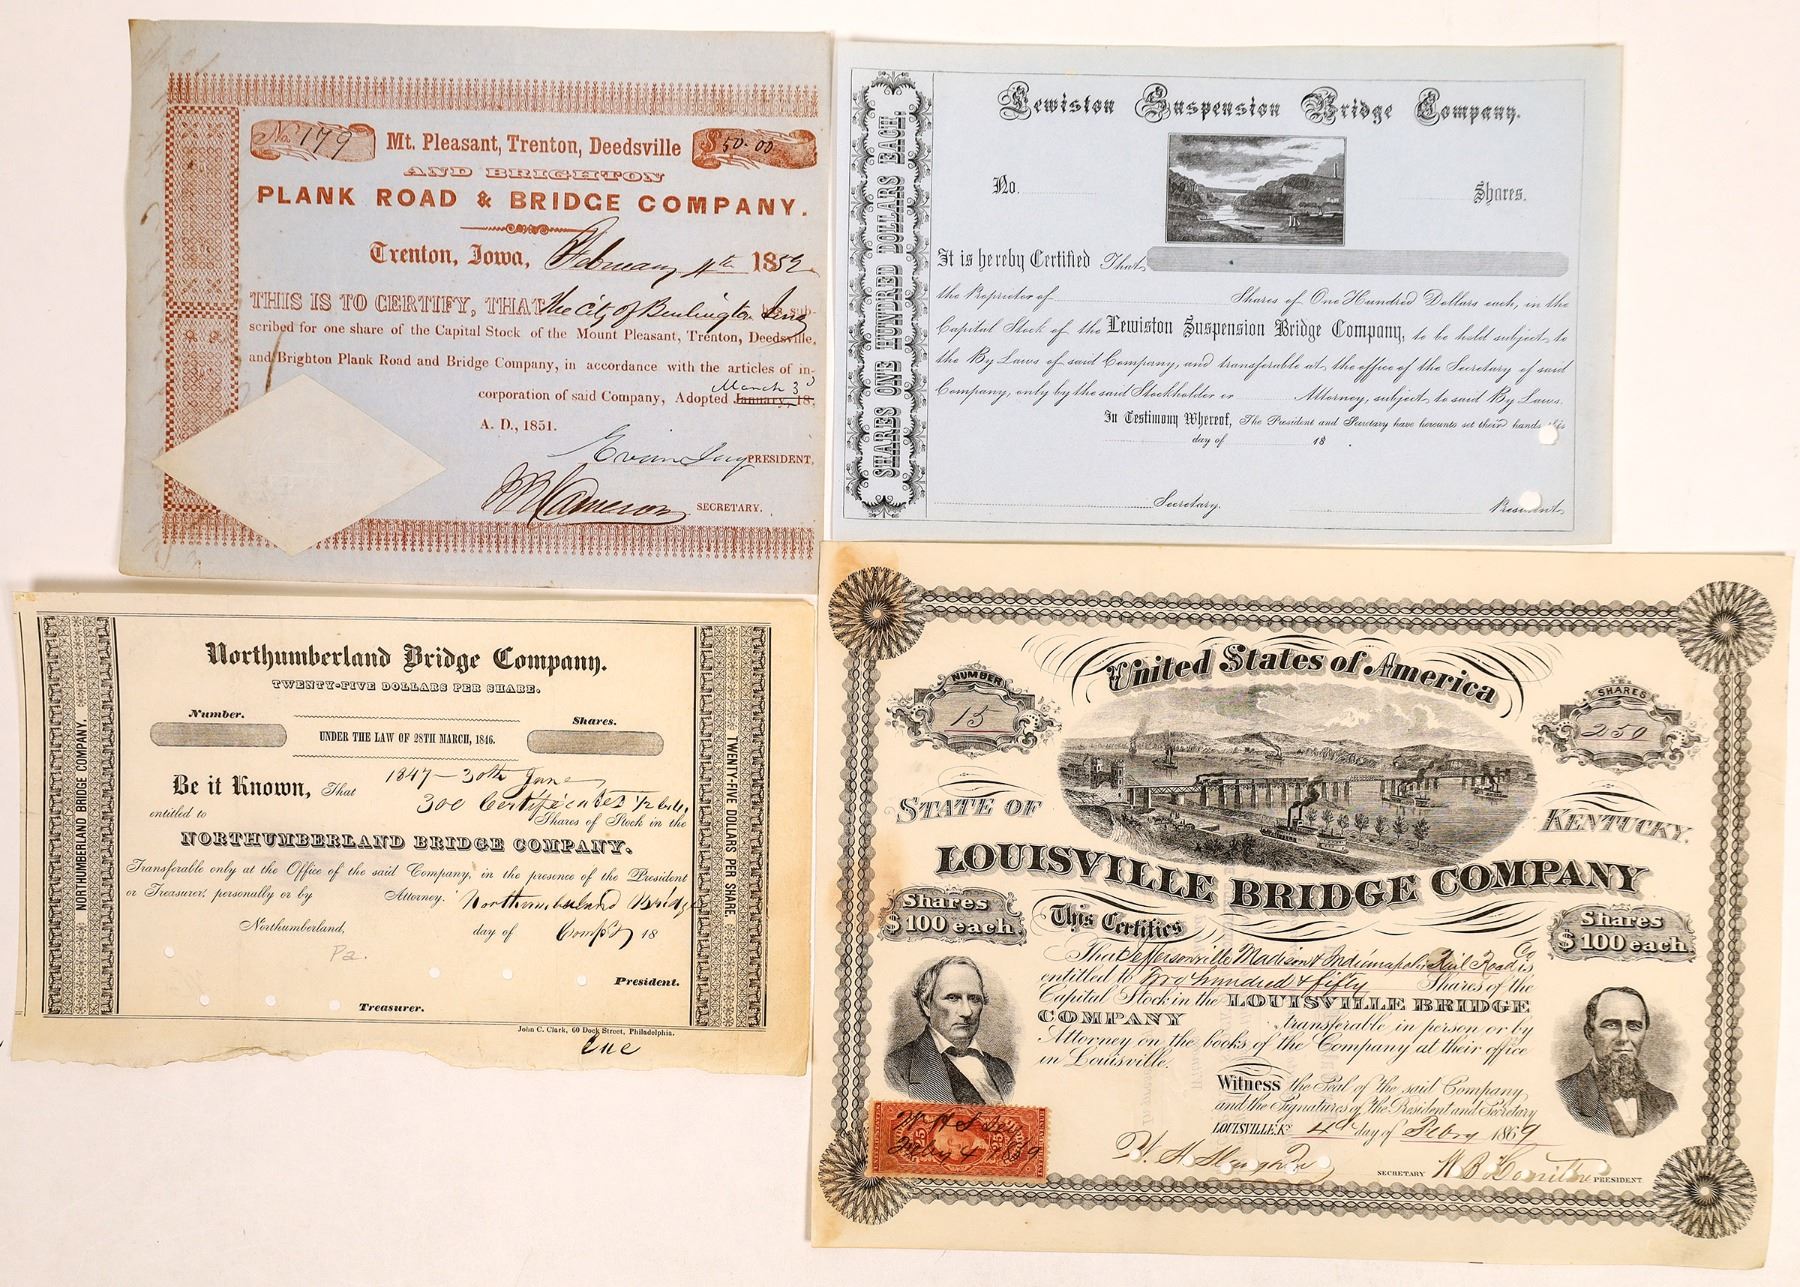 No. 179
Mt. Pleasant, Trenton, Deedsville
$50.00
AND BRIGHTON
PLANK ROAD & BRIDGE COMPANY.
Trenton, Iowa, February 4th 1852
THIS IS TO CERTIFY, THAT The City of Burlington has sub-
scribed for one share of the Capital Stock of the Mount Pleasant, Trenton, Deedsville,
and Brighton Plank Road and Bridge Company, in accordance with the articles of in-
March 3d
corporation of said Company, Adopted January, 18,
A. D., 1851.
PRESIDENT,
Cameron SECRETARY.
SHARES ONE HUNDRED DOLLARS EACH.
Lewiston Suspension Bridge Company.
No.
Shares.
It is hereby Certified That
the Proprietor of Shares of One Hundred Dollars each, in the
Capital Stock of the Lewiston Suspension Bridge Company, to be held subject to
the By Laws of said Company, and transferable at the office of the Secretary of said
Company, only by the said Stockholder or Attorney, subject to said By Laws.
In Testimony Whereof, The President and Secretary have hereunto set their hands this
day of 18
Secretary. President.
NORTHUMBERLAND BRIDGE COMPANY.
Northumberland Bridge Company.
TWENTY-FIVE DOLLARS PER SHARE.
Number.
Shares.
UNDER THE LAW OF 28TH MARCH, 1846.
Be it Known, That 1847 - 30th June
300 Certificates
entitled to Shares of Stock in the
NORTHUMBERLAND BRIDGE COMPANY.
Transferable only at the Office of the said Company, in the presence of the President
or Treasurer, personally or by Attorney. Northumberland Bridge
Northumberland, day of Comp'y 18
Pa.
President.
Treasurer.
John C. Clark, 60 Dock Street, Philadelphia.
TWENTY-FIVE DOLLARS PER SHARE.
United States of America
NUMBER
15
SHARES
250
STATE OF KENTUCKY.
LOUISVILLE BRIDGE COMPANY
Shares
$100 each.
This Certifies
Shares
$100 each.
That Jeffersonville Madison & Indianapolis Rail Road Co is
entitled to Two hundred & fifty Shares of the
Capital Stock in the LOUISVILLE BRIDGE
COMPANY transferable in person or by
Attorney on the books of the Company at their office
in Louisville.
Witness the Seal of the said Company
and the Signatures of the President and Secretary
LOUISVILLE, Ky. 4 day of Feby 1869
SECRETARY
PRESIDENT
25
25
Feby 4 1869